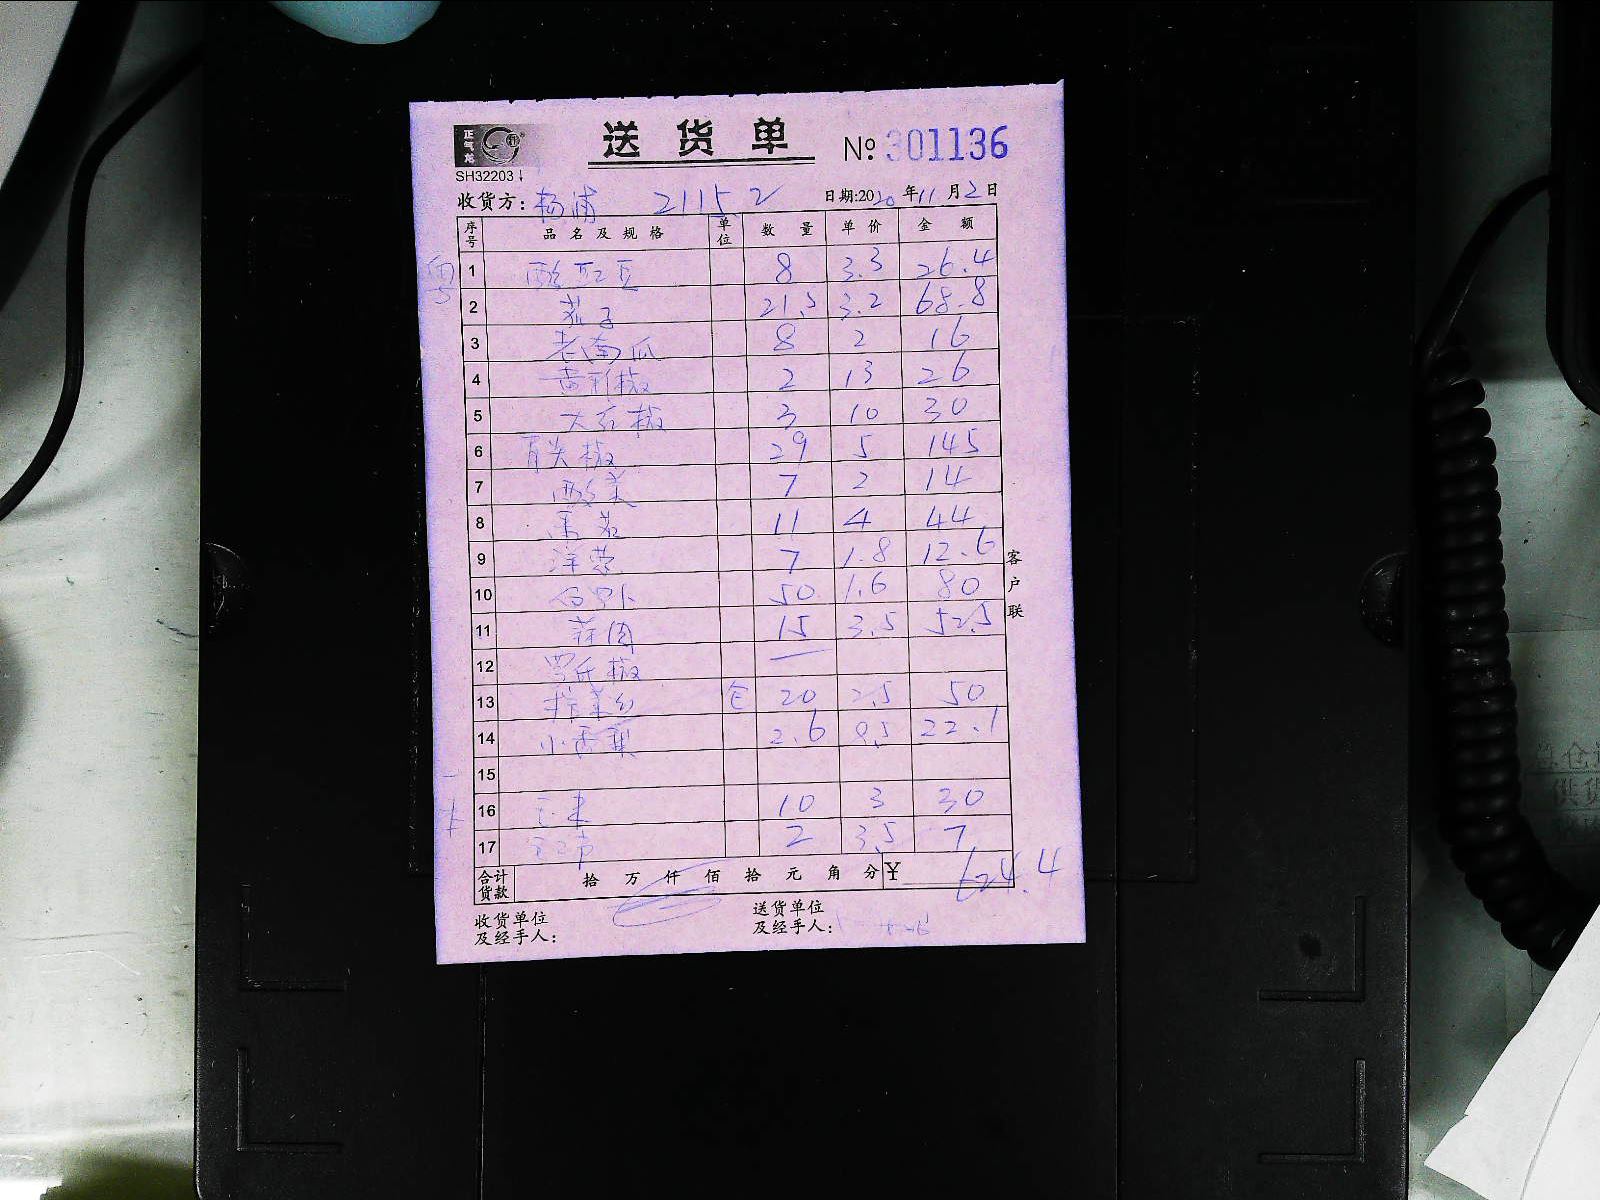 正气龙
送货单 № 301136
SH32203
收货方: 杨浦 21152 日期:2020年11月2日
序号 品名及规格 单位 数量 单价 金额
1 酸豇豆 8 3.3 26.4
2 茄子 21.5 3.2 68.8
3 老南瓜 8 2 16
4 黄彩椒 2 13 26
5 大红椒 3 10 30
6 青尖椒 29 5 145
7 酸菜 7 2 14
8 11 4 44
9 洋葱 7 1.8 12.6
10 白罗卜 50 1.6 80
11 蒜肉 15 3.5 52.5
12 椒
13 榨菜丝 包 20 2.5 50
14 小 2.6 8.5 22.1
15
16 玉米 10 3 30
17 2 3.5 7
合计货款 拾 万 仟 佰 拾 元 角 分 ¥ 624.4
收货单位及经手人: 送货单位及经手人:
客户联